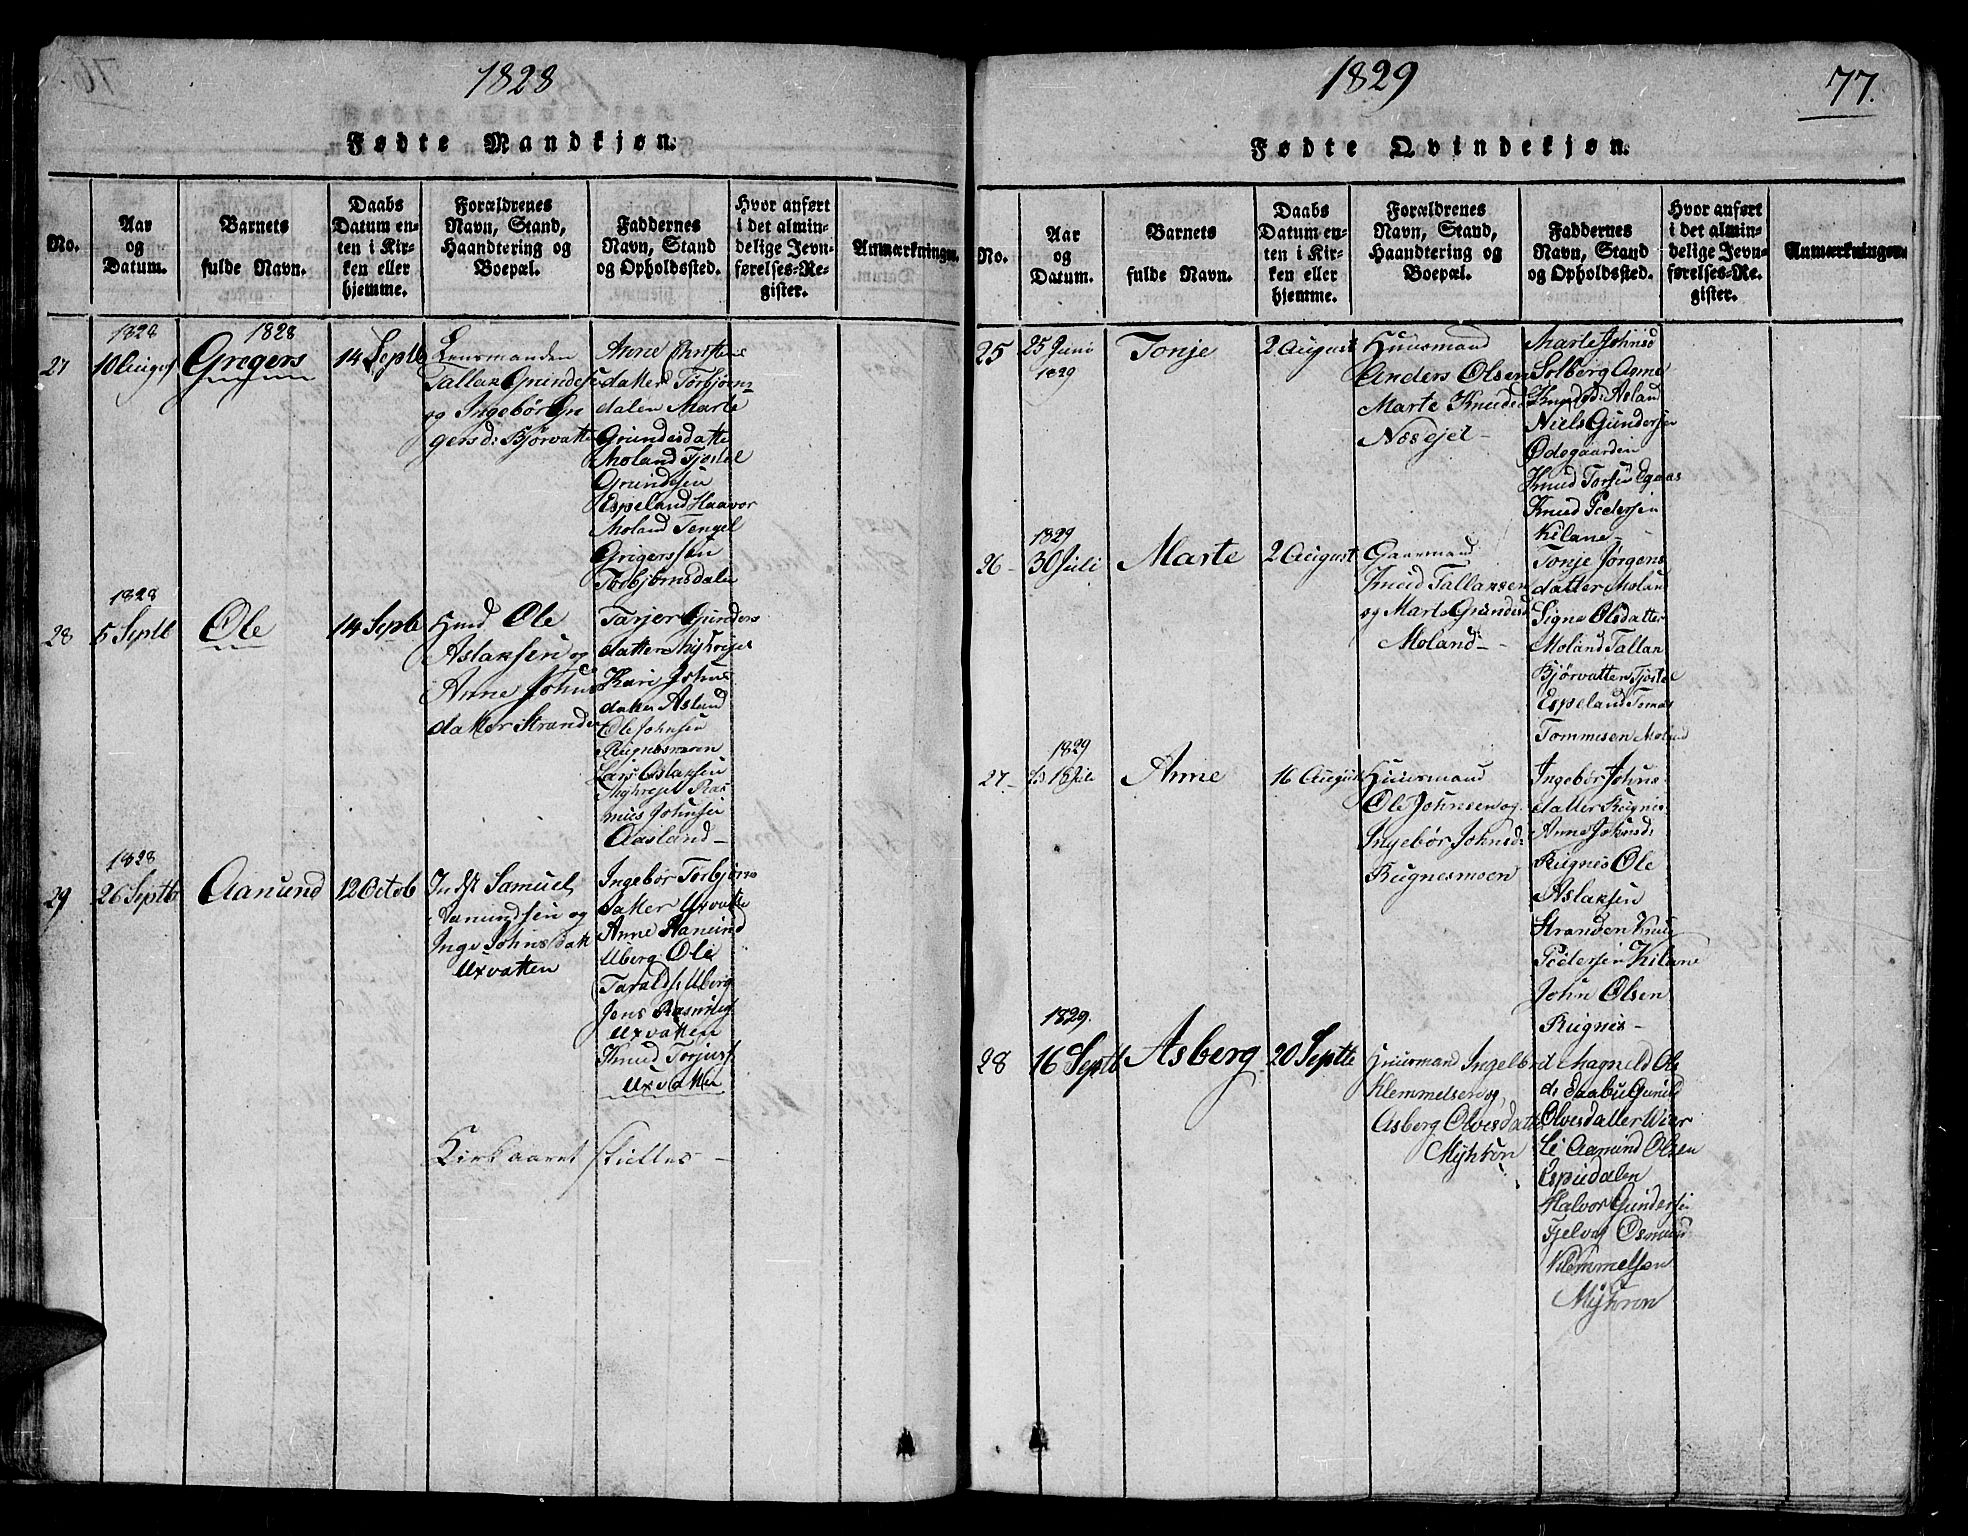 1828
Fødte Mandkjøn.
No.
Aar
og
Datum.
Barnets
fulde Navn.
Daabs
Datum en-
ten i Kir-
ken eller
hjemme.
Forældrenes
Navn, Stand,
Haandtering og
Boepæl.
Faddernes
Navn, Stand
og Opholdssted.
Hvor anført
i det almin-
delige Jevn-
førelses-Re-
gister.
Anmærkninger.
27
1828
10 August
1828
Gregers
14 Septb
Lensmanden
Tallak
og Ingebør
gersd: Bjørvatte
Anne Christens
datter Torbjørn-
dalen Marte
Grundesdatte
Moland Tjostel
Grundesen
Espeland Haavor
Moland Tengel
Grigerssen
Torbjørnsdalen
28
1828
5 Septb
Ole
14 Septb
Huusd Ole
Aslaksen og
Anne Johns
datter Stranden
Tarjer Gunders
datter Myhrejet
Kari Johns
datter Asland
Ole Johnsen
Rugnesmoen
Lars Aslaksen
Myhrejet Ras
mus Johnsen
Aasland-
29
1828
26 Septb
Aanund
12 Octob
Indst Samuel
Aanundsen og
Inge Johnsdatt
Uxvatten
Ingebør Torbjørns
datter Uxvatte
Anne Aanund
Uberg Ole
Taralds: Uberg
Jens Rasmus
Uxvatten
Knud Torjus
Uxvatten
Kirkaaret sluttes -
1829
77.
Fødte Qvindekjøn.
No.
Aar
og
Datum.
Barnets
fulde Navn.
Daabs
Datum en-
ten i Kir-
ken eller
hjemme.
Forældrenes
Navn, Stand,
Haandtering og
Boepæl.
Faddernes
Navn, Stand
og Opholdssted.
Hvor anført
i det almin-
delige Jevn-
førelses-Re-
gister.
Anmærkninger
25
25 Juni
1829
Tonje
2 August
Huusmand
Anders Olsen
Marte Knudsd
Næsejet-
Marte Johnsd
Solberg Anne
Knudsd: Asland
Niels Gundersen
Ødegaarden
Knud Torsen Egaas
Knud Pedersen
Kilane-
26-
1829
30 Juli
Marte
2 August
Gaarmand
Knud Tallaksen
og Marte Grundesd
Moland-
Tonje Jørgens
datter Moland
Signe Olsdatter
Moland Tallak
Bjørvatten Tjostel
Espeland Tomas
Tommesen Moland
27-
1829
Juli
Anne
16 August
Huusmand
Ole Johnsen og
Ingebør Johnsd:
Rugnesmoen
Ingebør Johns
datter Rugnis
Anne Johnsd:
Rugnes Ole
Aslaksen
Stranden Knud
Pedersen Kilane
John Olsen
Rugnis-
28
1829.
16 Septb
Asberg
20 Septbe
Huusmand Ingelbrd
Klemmetsen og
Asberg Olvesdatte
Myhren
Magneld Ols
d: Gunild
Olvesdatter
Aanund Olsen
Espedalen
Halvor Gunders:
Tjelvag Osmund
Klemmetsen
Myhren